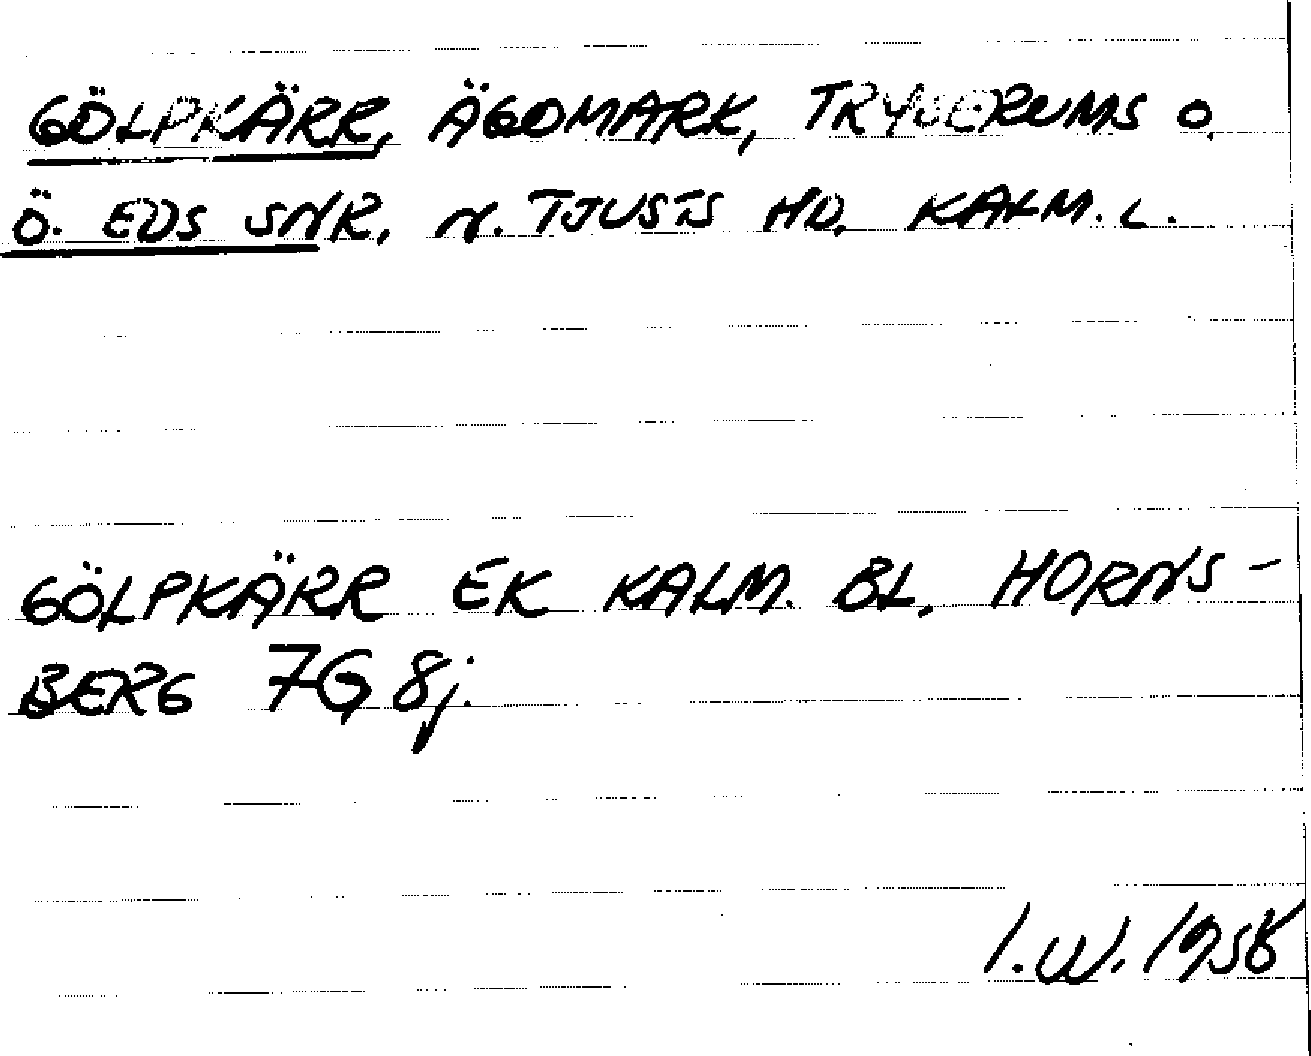 GÖLPKÄRR, ÄGOMARK, TRYSERUMS O.
Ö. EDS SNR, N. TJUSTS HD, KALM. L.
GÖLPKÄRR EK KALM. BL. HORNS-
BERG 7G 8j.
I.W. 1958